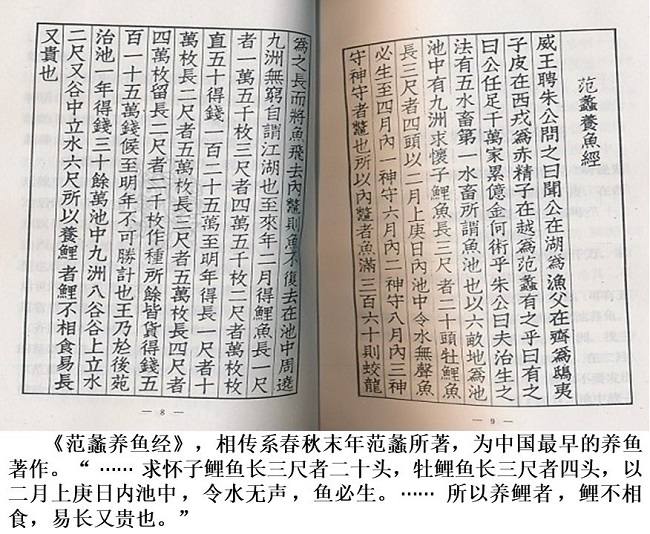 范蠡養魚經
威王聘朱公問之曰聞公在湖爲漁父在齊爲鴟夷
子皮在西戎爲赤精子在越爲范蠡有之乎曰有之
曰公任足千萬家累億金何術乎朱公曰夫治生之
法有五水畜第一水畜所謂魚池也以六畝地爲池
池中有九洲求懷子鯉魚長三尺者二十頭牡鯉魚
長三尺者四頭以二月上庚日內池中令水無聲魚
必生至四月內一神守六月內二神守八月內三神
守神守者鼈也所以內鼈者魚滿三百六十則蛟龍
— 9 —
爲之長而將魚飛去內鼈則魚不復去在池中周遶
九洲無窮自謂江湖也至來年二月得鯉魚長一尺
者一萬五千枚三尺者四萬五千枚二尺者萬枚枚
直五十得錢一百二十五萬至明年得長一尺者十
萬枚長二尺者五萬枚長三尺者五萬枚長四尺者
四萬枚留長二尺者二千枚作種所餘皆貨得錢五
百一十五萬錢候至明年不可勝計也王乃於後苑
治池一年得錢三十餘萬池中九洲八谷谷上立水
二尺又谷中立水六尺所以養鯉者鯉不相食易長
又貴也
— 8 —
《范蠡养鱼经》，相传系春秋末年范蠡所著，为中国最早的养鱼
著作。“ …… 求怀子鲤鱼长三尺者二十头，牡鲤鱼长三尺者四头，以
二月上庚日内池中，令水无声，鱼必生。…… 所以养鲤者，鲤不相
食，易长又贵也。”